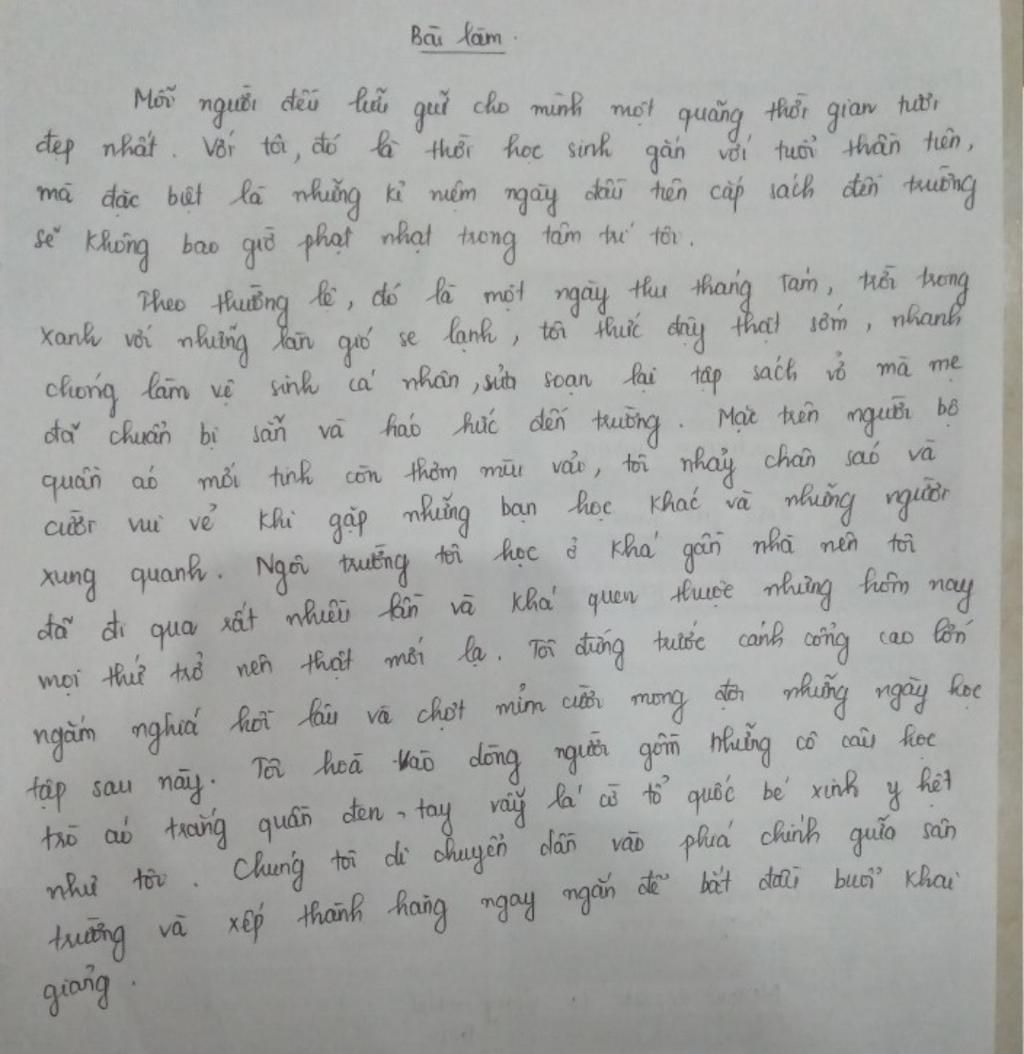 Bài làm.
Mỗi người đều lưu giữ cho mình một quãng thời gian tươi
đẹp nhất. Với tôi, đó là thời học sinh gắn với tuổi thần tiên,
mà đặc biệt là những kỉ niệm ngày đầu tiên cắp sách đến trường
sẽ không bao giờ phạt nhạt trong tâm trí tôi.
Theo thường lệ, đó là một ngày thu tháng Tám, trời trong
xanh với những làn gió se lạnh, tôi thức dậy thật sớm, nhanh
chóng làm vệ sinh cá nhân, sửa soạn lại tập sách vở mà mẹ
đã chuẩn bị sẵn và háo hức đến trường. Mặc trên người bộ
quần áo mới tinh còn thơm mùi vải, tôi nhảy chân sáo và
cười vui vẻ khi gặp những bạn học khác và những người
xung quanh. Ngôi trường tôi học ở khá gần nhà nên tôi
đã đi qua rất nhiều lần và khá quen thuộc nhưng hôm nay
mọi thứ trở nên thật mới lạ. Tôi đứng trước cánh cổng cao lớn
ngắm nghía hồi lâu và chợt mỉm cười mong đợi những ngày học
tập sau này. Tôi hoà vào dòng người gồm những cô cậu học
trò áo trắng quần đen, tay vẫy lá cờ tổ quốc bé xinh y hệt
như tôi. Chúng tôi di chuyển dần vào phía chính giữa sân
trường và xếp thành hàng ngay ngắn để bắt đầu buổi khai
giảng.